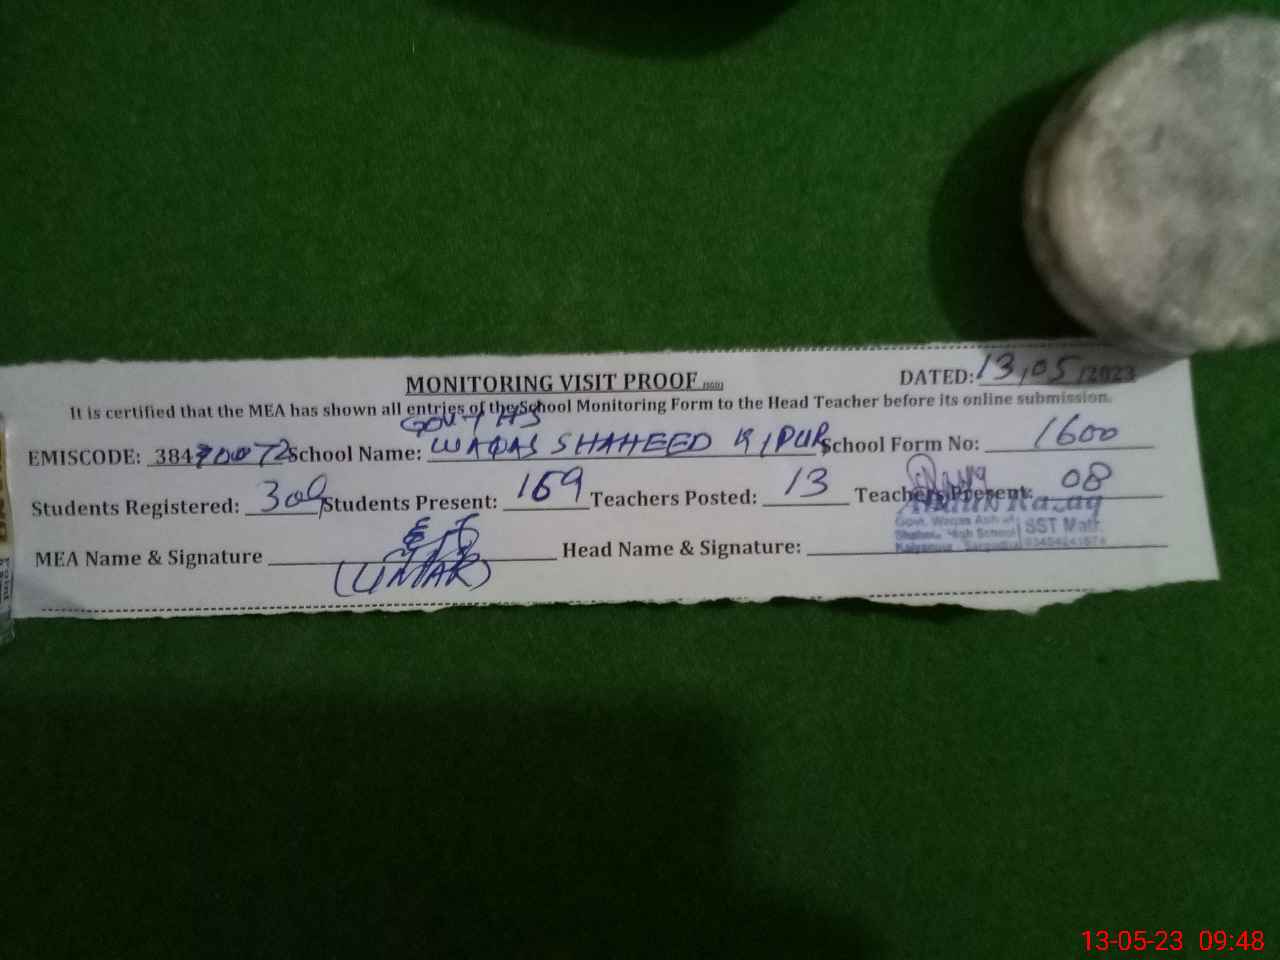 MONITORING VISIT PROOF
DATED: 13,05/2023
It is certified that the MEA has shown all entries of the School Monitoring Form to the Head Teacher before its online submission.
GOVT HS
EMISCODE: 38470072 School Name: WAQAS SHAHEED K/PUR School Form No: 1600
Students Registered: 309 Students Present: 159 Teachers Posted: 13 Teachers Present: 08
Razaq
SST Math
High School
MEA Name & Signature (UMAR) Head Name & Signature:
13-05-23 09:48